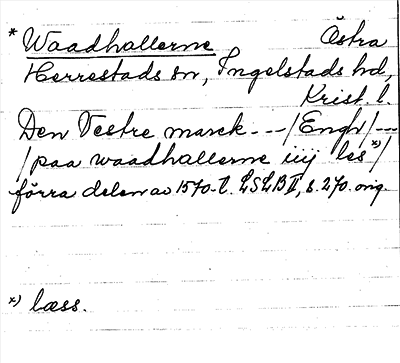 * Waadhallerne Östra
Herrestads sn, Ingelstads hd,
Krist. l.
Den Vestre marck --- / Engh / ---
/ paa waadhallerne iiij les *) /
förra delen av 1570-t. LSLB II, s. 270. orig.
*) læss.